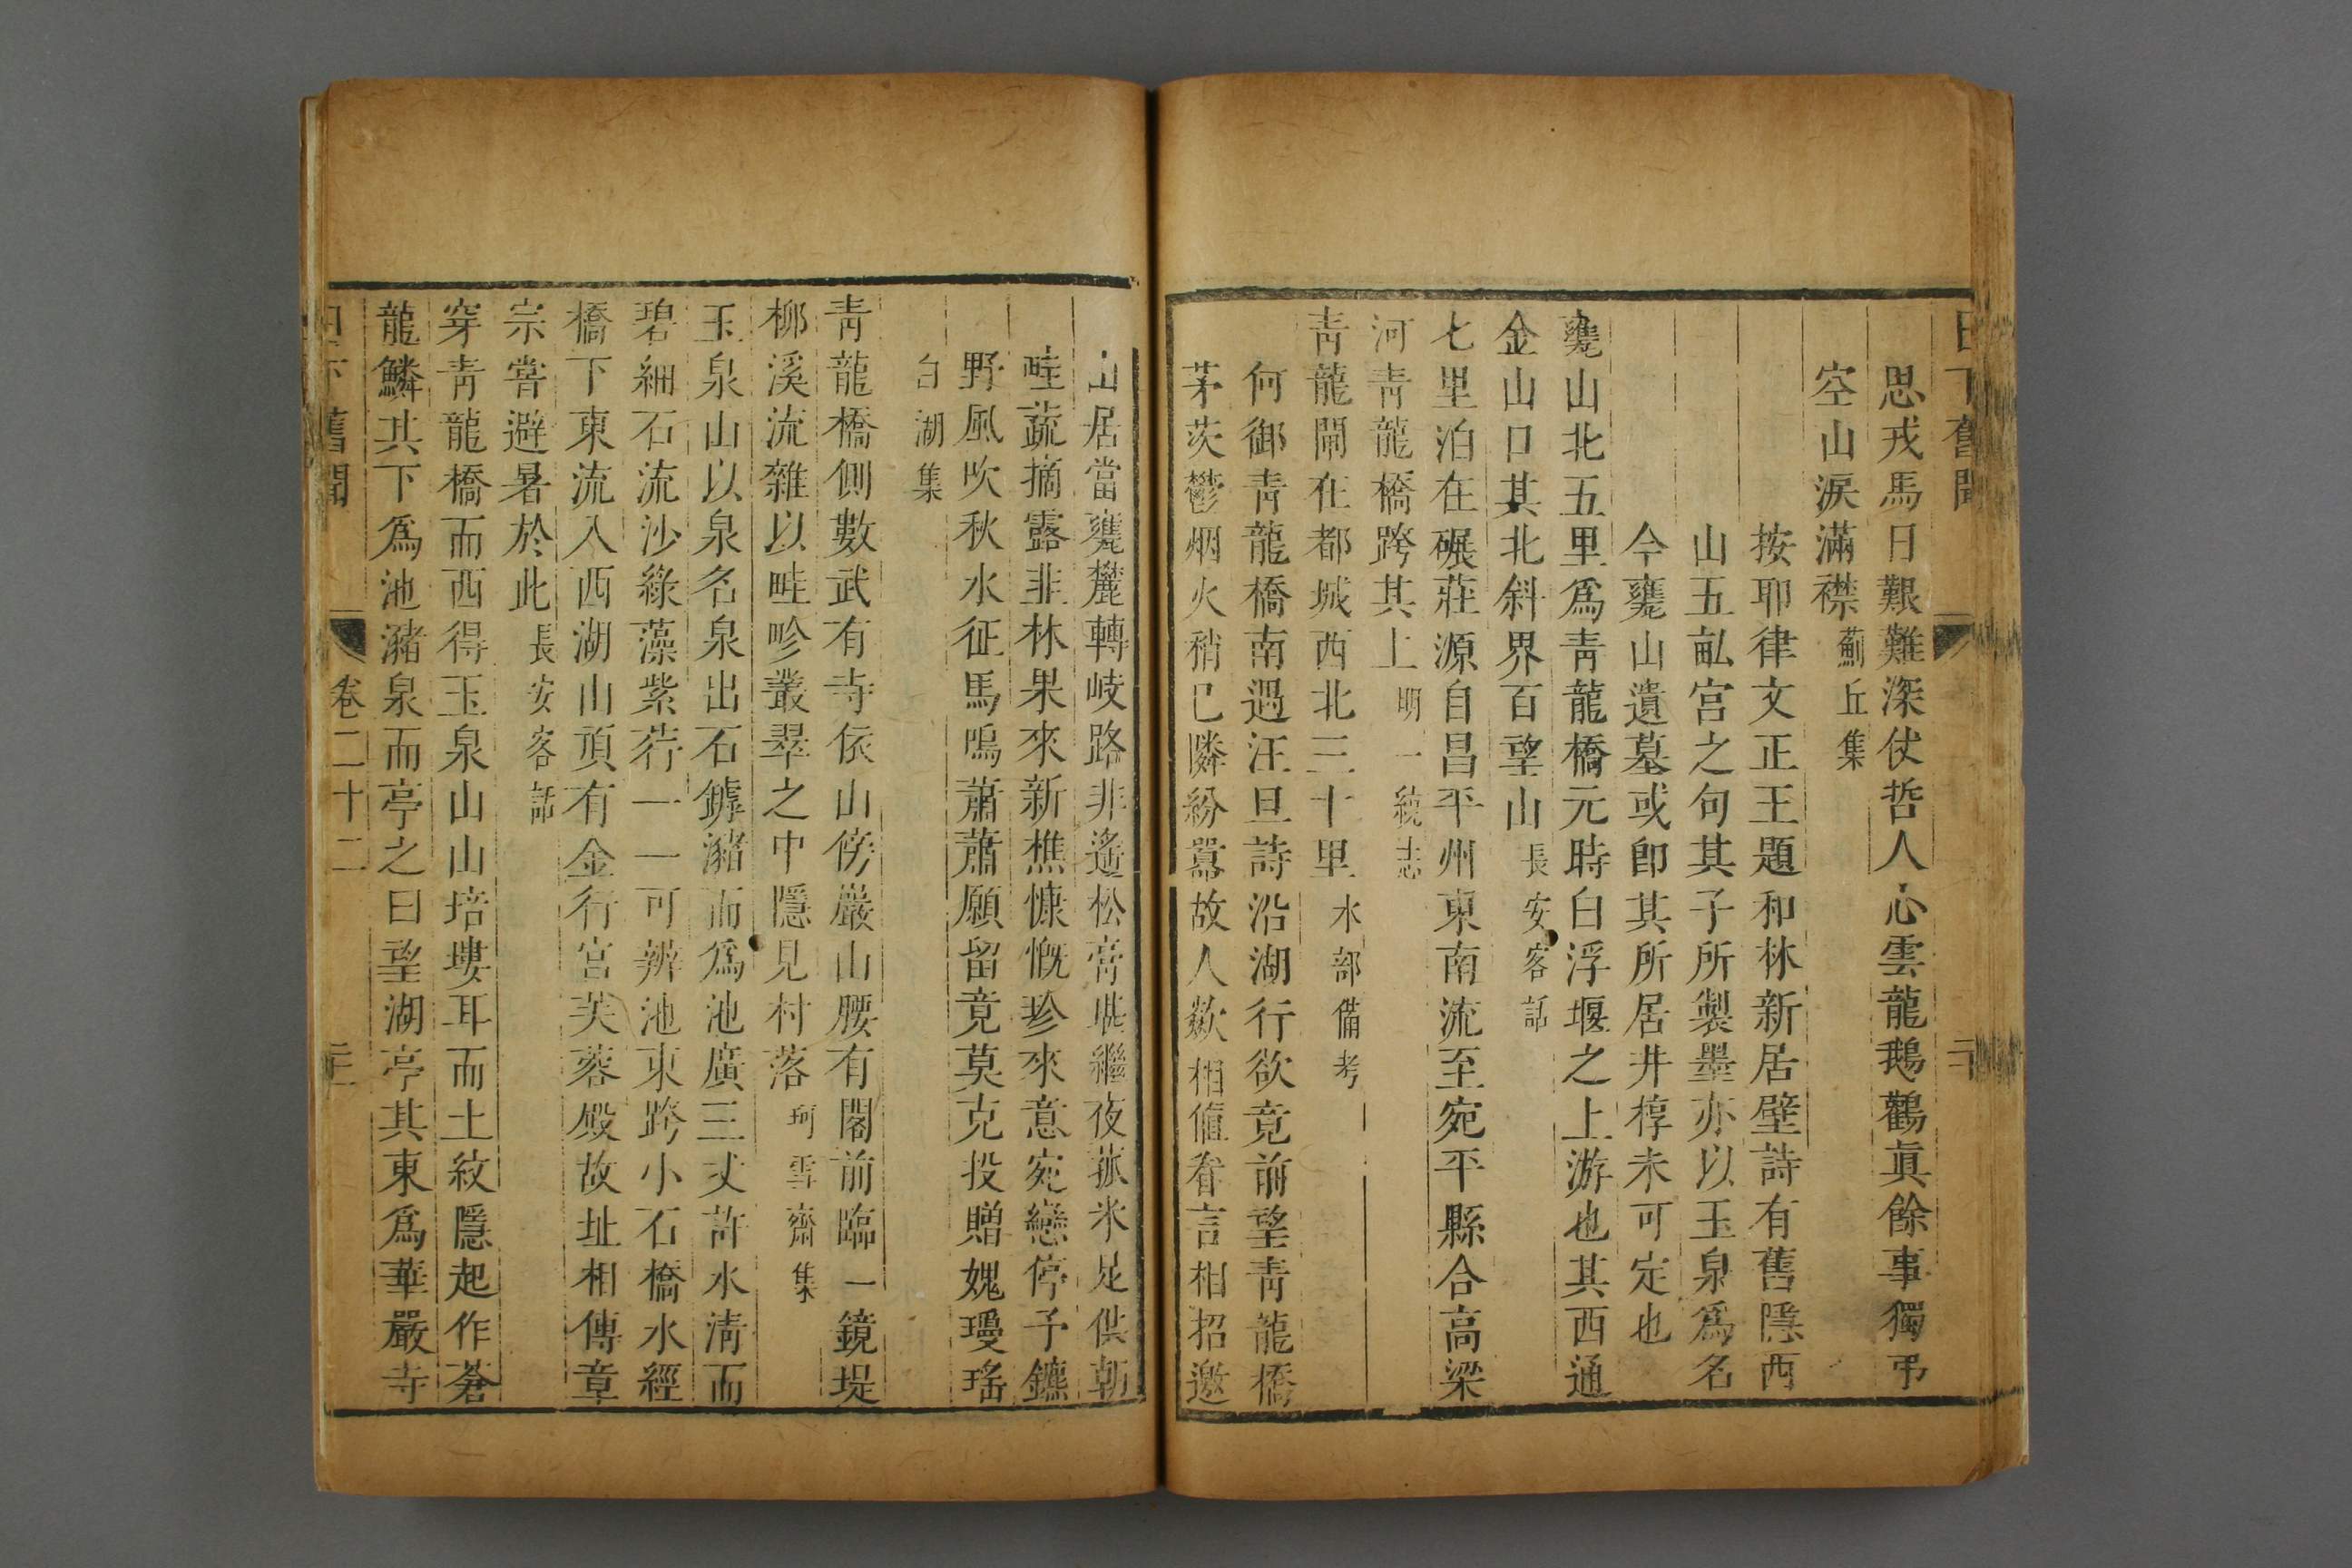 日下舊聞
思戎馬日艱難深仗哲人心雲龍鵝鸛眞餘事獨弔
空山淚滿襟薊丘集
按耶律文正王題和林新居壁詩有舊隱西
山五畝宮之句其子所製墨亦以玉泉爲名
今甕山遺墓或卽其所居井椁未可定也
甕山北五里爲靑龍橋元時白浮堰之上游也其西通
金山口其北斜界百望山長安客話
七里泊在碾莊源自昌平州東南流至宛平縣合高梁
河靑龍橋跨其上明一統志
靑龍閘在都城西北三十里水部備考
何御靑龍橋南過汪旦詩沿湖行欲竟前望靑龍橋
茅茨鬱烟火稍已隣紛囂故人歘相値眷言相招邀
山居當甕麓轉岐路非遙松膏堪繼夜菰米足供朝
畦蔬摘露韭林果來新樵慷慨珍來意宛戀停子鑣
野風吹秋水征馬鳴蕭蕭願留竟莫克投贈媿瓊瑤
白湖集
靑龍橋側數武有寺依山傍巖山腰有閣前臨一鏡堤
柳溪流雜以畦畛叢翠之中隱見村落珂雪齋集
玉泉山以泉名泉出石罅瀦而爲池廣三丈許水淸而
碧細石流沙綠藻紫荇一一可辨池東跨小石橋水經
橋下東流入西湖山頂有金行宮芙蓉殿故址相傳章
宗嘗避暑於此長安客話
穿靑龍橋而西得玉泉山山培塿耳而土紋隱起作蒼
龍鱗其下爲池瀦泉而亭之曰望湖亭其東爲華嚴寺
日下舊聞 卷二十二